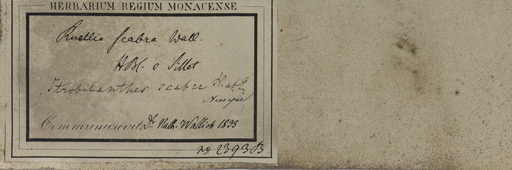 HERBARIUM REGIUM MONACENSE
Ruellia scabra Wall.
HBC. e Sillet
Strobilanthes scaber
Communicavit Dr. Nath. Wallich 1833
no 2393B